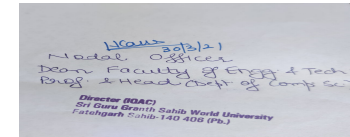 30/3/21
Nodal Officer
Dean Faculty of Engg & Tech
Prof. & Head (Dept of Comp Sc
Director (IQAC)
Sri Guru Granth Sahib World University
Fatehgarh Sahib-140 406 (Pb.)